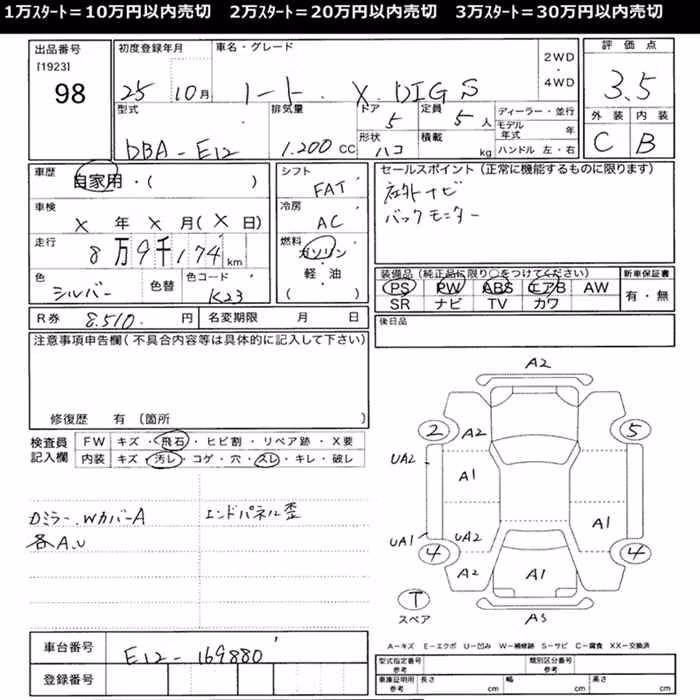 1万ｽﾀｰﾄ＝10万円以内売切　2万ｽﾀｰﾄ＝20万円以内売切　3万ｽﾀｰﾄ＝30万円以内売切
出品番号 [1923] 98
初度登録年月 25 10月
車名・グレード ノート X DIGS
2WD・4WD
評価点 3.5
外装 内装
C B
型式 DBA-E12
排気量 1.200 cc
ドア 5
定員 5人
形状 ハコ
積載 kg
ディーラー・並行
モデル年式 年
ハンドル 左・右
車歴 自家用・( )
シフト FAT
セールスポイント (正常に機能するものに限ります)
社外ナビ
バックモニター
車検 X年X月(X日)
冷房 AC
走行 8万9千174km
燃料 ガソリン・軽・油 ( )
色 シルバー 色替
色コード K23
装備品 (純正品に限り○をつけてください)
PS PW ABS エアB AW
SR ナビ TV カワ
新車保証書 有・無
R券 8.510 円
名変期限 月 日
後日品
注意事項申告欄 (不具合内容等は具体的に記入して下さい)
修復歴 有 (箇所 )
検査員記入欄
FW キズ・飛石・ヒビ割・リペア跡・X要
内装 キズ・汚レ・コゲ・穴・スレ・キレ・破レ
カミラー.WカバーA
各A.U
エンドパネル歪
A2
2 A2 5
UA2
A1
A1
UA1 UA2
4 4
A2 A1
T スペア
A3
A－キズ E－エクボ U－凹み W－補修跡 S－サビ C－腐食 XX－交換済
車台番号 E12-169880
登録番号
型式指定番号 参考
類別区分番号 参考
車庫証明用 参考 長さ cm 幅 cm 高さ cm